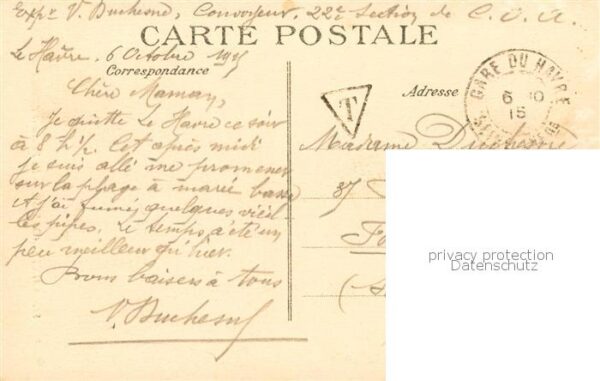 Exp. V. Duchesne, Convoyeur, 22e Section de C.O.A.
CARTE POSTALE
Le Havre, 6 Octobre 1915
Correspondance
Adresse
T
GARE DU HAVRE
6 10
15
Chère Maman,
Je quitte Le Havre ce soir
à 8 h ½. Cet après midi
je suis allé me promener
sur la plage à marée basse
et j'ai fumé quelques vieil
les pipes. Le temps a été un
peu meilleur qu'hier.
Bons baisers à tous
V. Duchesne
Madame Duchesne
37
privacy protection
Datenschutz